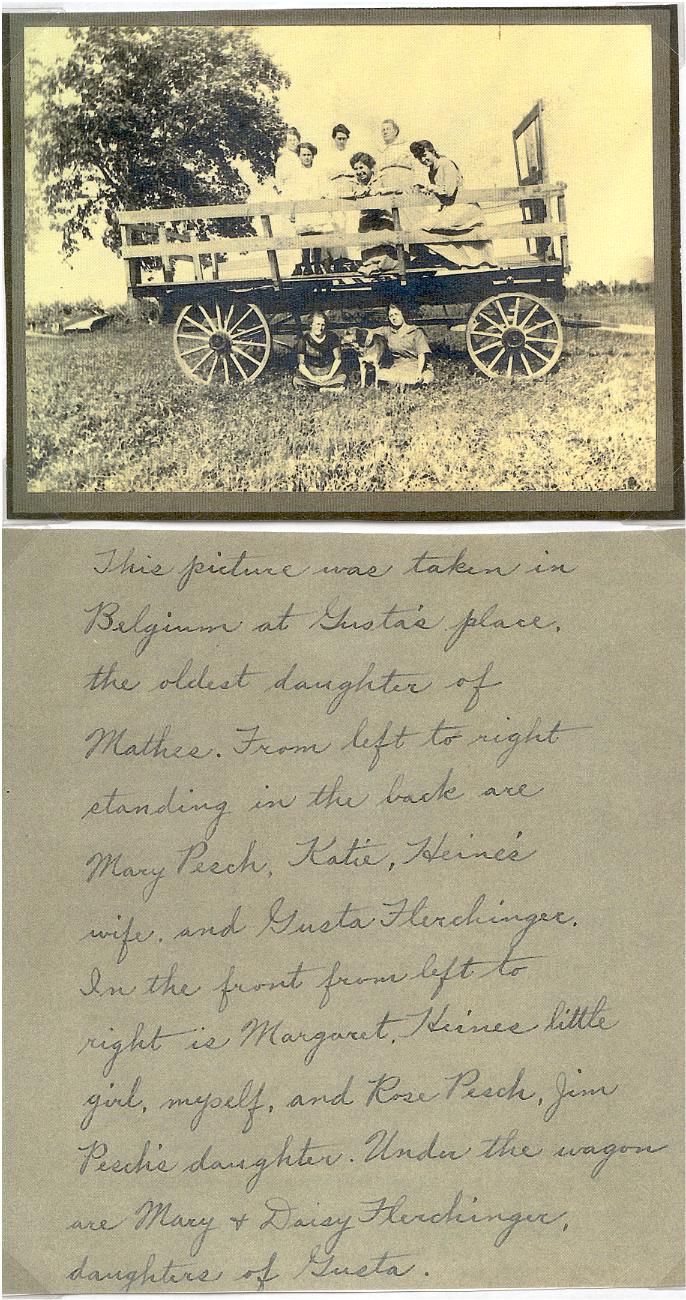 This picture was taken in
Belgium at Gusta's place,
the oldest daughter of
Mathes. From left to right
standing in the back are
Mary Pesch, Katie, Heine's
wife, and Gusta Flerchinger.
In the front from left to
right is Margaret, Heines little
girl, myself, and Rose Pesch, Jim
Pesch's daughter. Under the wagon
are Mary + Daisy Flerchinger,
daughters of Gusta.